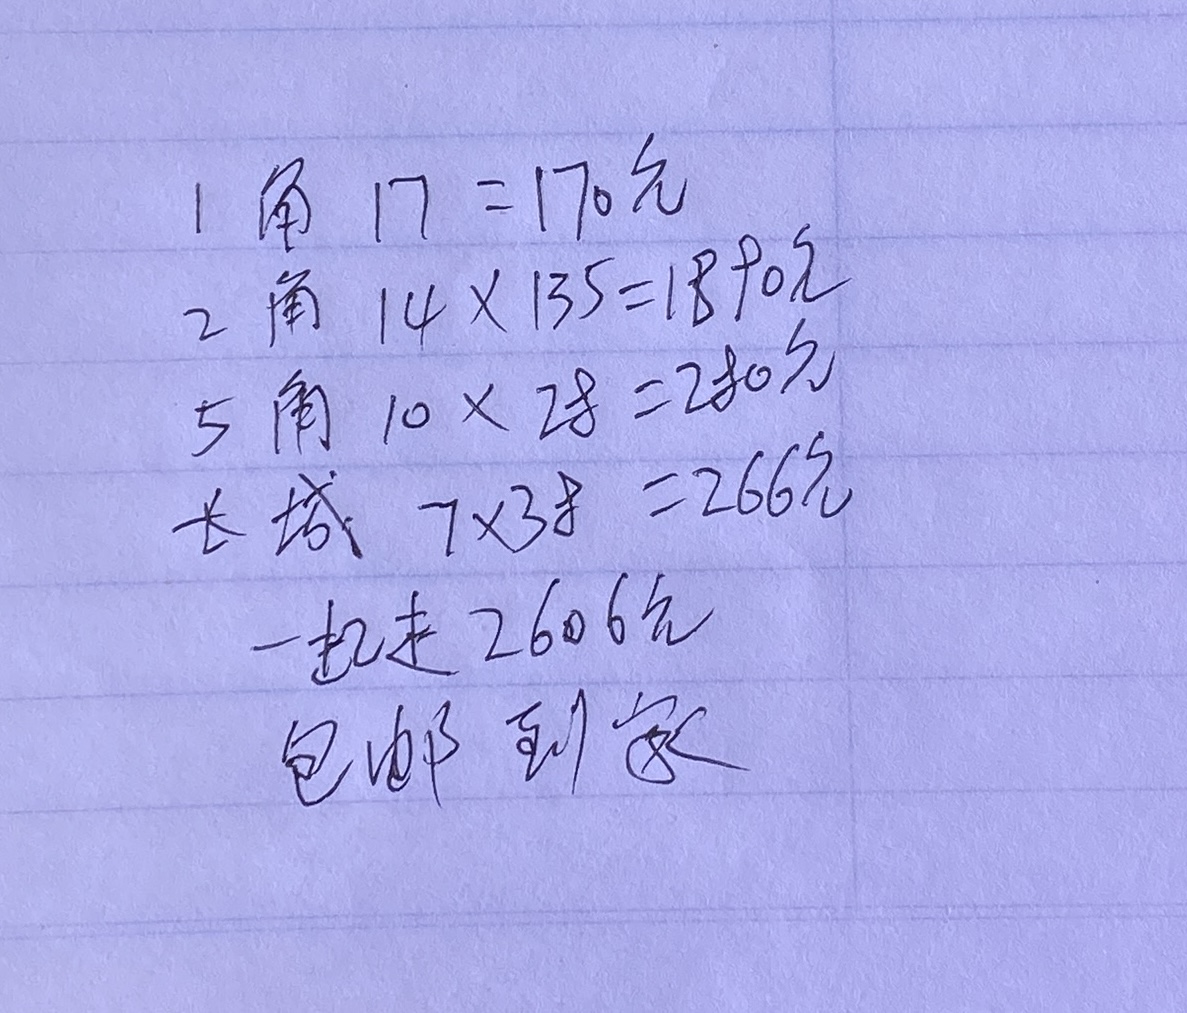 1角 17 =170元
2角 14×135=1890元
5角 10×28=280元
长城 7×38 =266元
一起走2606元
包邮到家